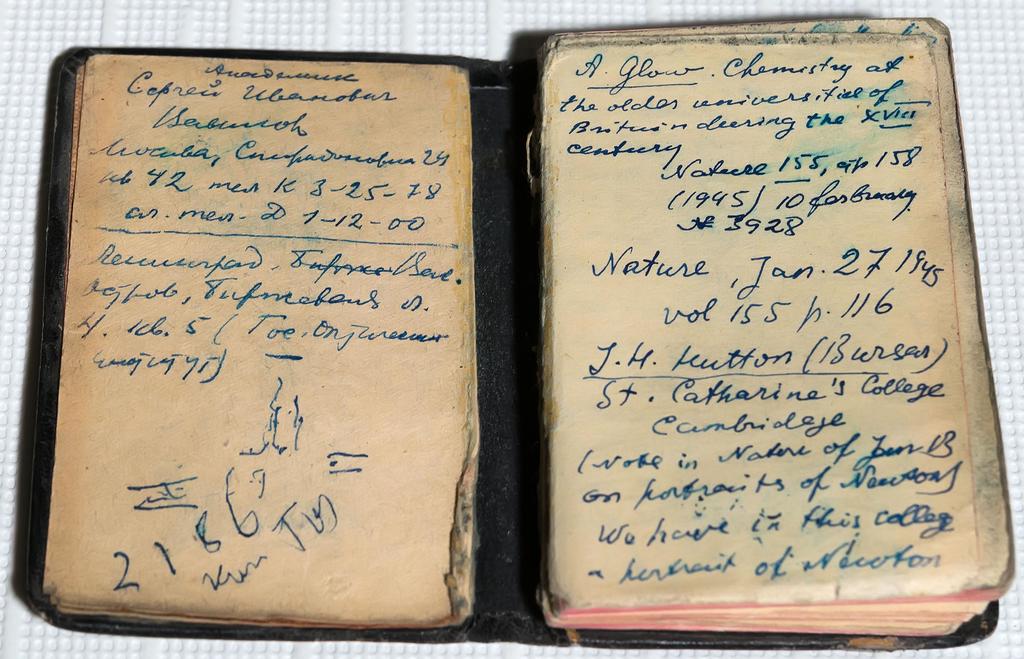 Академик
Сергей Иванович
Вавилов
Москва, Спиридоновка 24
кв 42 тел К 3-25-78
сл. тел. Д 1-12-00
Ленинград, Вас.
остров, Биржевая л.
4. кв. 5 (Гос. Оптический
институт)
2 1 8 6
A. Glow. Chemistry at
the older universities of
Britain during the XVIII
century
Nature 155, стр 158
(1945) 10 february
№ 3928
Nature, Jan. 27 1945
vol 155 p. 116
J. H. Hutton (Bursar)
St. Catharine's College
Cambridege
(Note in Nature of Jan 13
on portraits of Newton)
We have in this colleg
a portrait of Newton